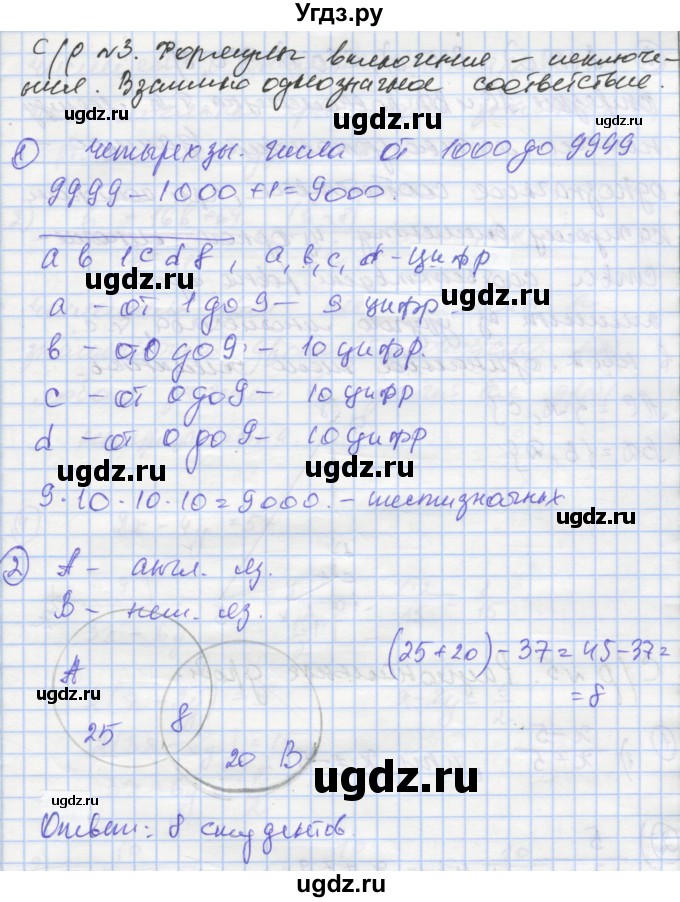 Угдз.ру
С/р №3. Формулы включения – исключе-
ния. Взаимно однозначное соответствие.
ugdz.ru ugdz.ru
ugdz.ru
1) четырехзн. числа от 1000 до 9999
9999 – 1000 + 1 = 9000.
ugdz.ru ugdz.ru
a b 1 c d 8, a, b, c, d – цифр
ugdz.ru ugdz.ru
a – от 1 до 9 – 9 цифр.
b – от 0 до 9 – 10 цифр.
ugdz.ru ugdz.ru
c – от 0 до 9 – 10 цифр
d – от 0 до 9 – 10 цифр
ugdz.ru ugdz.ru
9·10·10·10 = 9000. – шестизначных
ugdz.ru
2) A – англ. яз.
ugdz.ru ugdz.ru
B – нем. яз.
(25+20) – 37 = 45 – 37 =
= 8
A
ugdz.ru ugdz.ru
25 8 20 B
ugdz.ru
ugdz.ru
Ответ: 8 студентов.
ugdz.ru
ugdz.ru